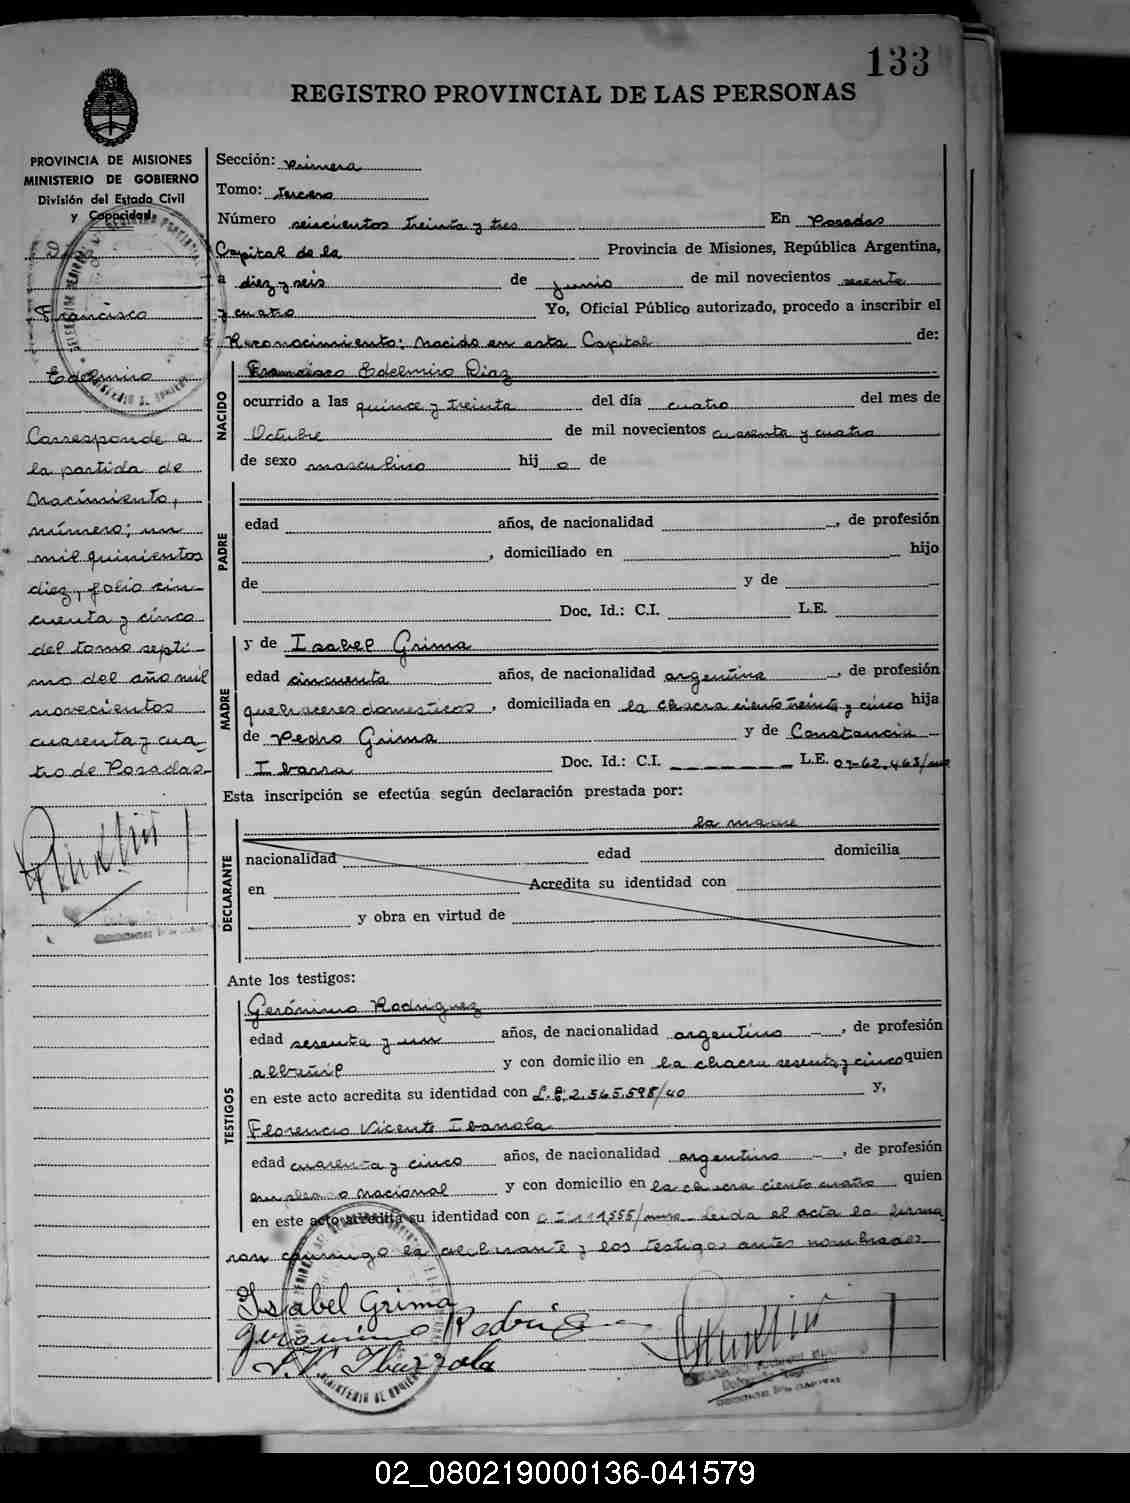 133
REGISTRO PROVINCIAL DE LAS PERSONAS
PROVINCIA DE MISIONES
MINISTERIO DE GOBIERNO
División del Estado Civil
y Capacidad
Francisco
Edelmiro
Corresponde a
la partida de
Nacimiento,
número; un
mil quinientos
diez, folio cin-
cuenta y cinco
del tomo septi-
mo del año mil
novecientos
cuarenta y cua-
tro de Posadas
Sección: Primera
Tomo: tercero
Número seiscientos treinta y tres En Posadas
Capital de la Provincia de Misiones, República Argentina,
a diez y seis de junio de mil novecientos sesenta
y cuatro Yo, Oficial Público autorizado, procedo a inscribir el
Reconocimiento: Nacido en esta Capital de:
NACIDO
Francisco Edelmiro Diaz
ocurrido a las quince y treinta del día cuatro del mes de
Octubre de mil novecientos cuarenta y cuatro
de sexo masculino hij o de
PADRE
edad años, de nacionalidad , de profesión
, domiciliado en hijo
de y de
Doc. Id.: C.I. L.E.
MADRE
y de Isabel Grima
edad cincuenta años, de nacionalidad argentina , de profesión
quehaceres domesticos , domiciliada en la chacra ciento treinta y cinco hija
de Pedro Grima y de Constancia
Ibarra Doc. Id.: C.I. L.E.
Esta inscripción se efectúa según declaración prestada por:
la madre
DECLARANTE
nacionalidad edad domicilia
en Acredita su identidad con
y obra en virtud de
Ante los testigos:
TESTIGOS
Gerónimo Rodriguez
edad sesenta y un años, de nacionalidad argentino , de profesión
albañil y con domicilio en la chacra sesenta y cinco quien
en este acto acredita su identidad con L.E. 2.565.598/40 y,
Florencio Vicente Ibarrola
edad cuarenta y cinco años, de nacionalidad argentino , de profesión
empleado nacional y con domicilio en la chacra ciento cuatro quien
en este acto acredita su identidad con Leida el acta la firma
ron conmigo la declarante y los testigos antes nombrados
Isabel Grima
Geronimo Rodriguez
Ibarrola
02_080219000136-041579